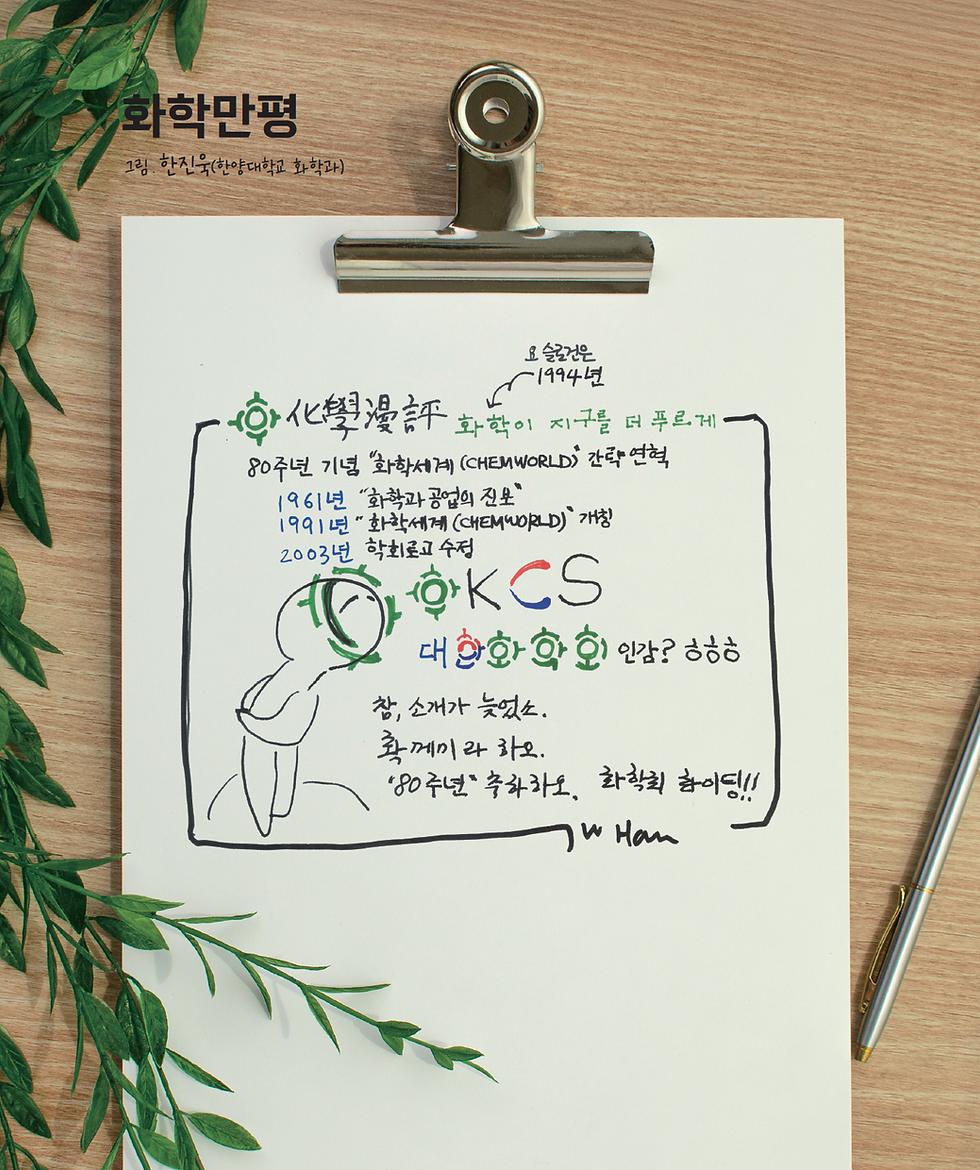 화학만평
그림. 한진욱(한양대학교 화학과)
요 슬로건은
1994년
化學漫評 화학이 지구를 더 푸르게
80주년 기념 "화학세계(CHEMWORLD)" 간략 연혁
1961년 "화학과 공업의 진보"
1991년 "화학세계(CHEMWORLD)" 개칭
2003년 학회로고 수정
KCS
대한화학회 인감? ㅎㅎㅎ
참, 소개가 늦었소.
확께미라 하오.
"80주년" 축화하오. 화학회 화이팅!!
JW Han